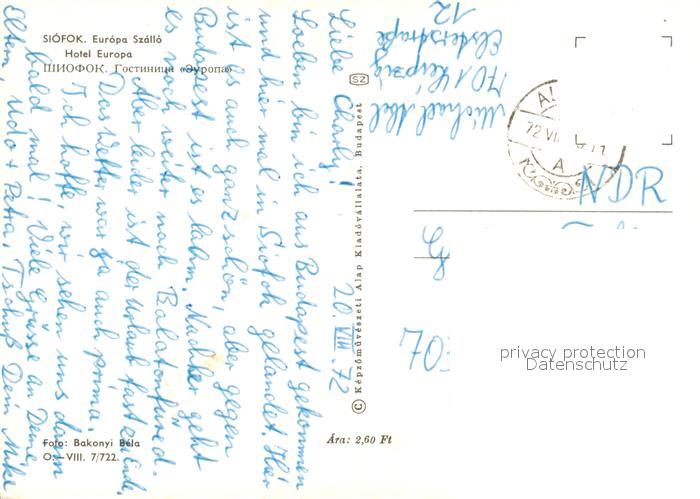 SIÓFOK. Európa Szálló
Hotel Europa
ШИОФОК. Гостиница «Эуропа»
20. VIII. 72
Liebe Charly!
Soeben bin ich aus Budapest gekommen
und hier mal in Siófok gelandet. Hier
ist es auch ganz schön, aber gegen
Budapest ist es lahm. Nachher geht
es noch weiter nach Balatonfüred.
Aber leider ist der Urlaub fast zu Ende.
Das Wetter war ja auch prima.
Ich hoffe, wir sehen uns dann
bald mal! Viele Grüsse an Deine
Eltern, Udo + Petra, Tschüß Dein Mike
Foto: Bakonyi Béla
O.—VIII. 7/722.
SZ
© Képzőművészeti Alap Kiadóvállalata, Budapest
Ára: 2,60 Ft
Michael
701 Leipzig
Elsterstraße
12
72 VIII
A
NDR
70
privacy protection
Datenschutz